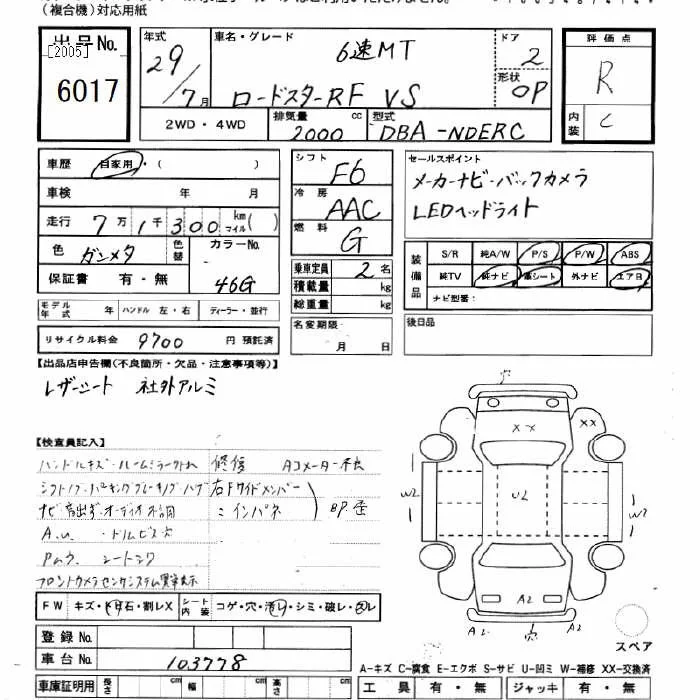 （複合機）対応用紙
出品No.
[2005]
6017
年式 29／7月
車名・グレード 6速MT
ロードスターRF VS
ドア 2
形状 OP
2WD・4WD
排気量 2000 cc
型式 DBA-NDERC
評価点
R
内装 C
車歴 自家用・（ ）
車検 年 月
走行 7万1千300 km マイル( )
色 ガンメタ 色替
カラーNo. 46G
保証書 有・無
モデル年式 年 ハンドル 左・右 ディーラー・並行
リサイクル料金 9700 円 預託済
シフト F6
冷房 AAC
燃料 G
乗車定員 2名
積載量 kg
総重量 kg
名変期限
月 日
セールスポイント
メーカーナビ・バックカメラ
LEDヘッドライト
装備品
S/R 純A/W P/S P/W ABS
純TV 純ナビ 革シート 外ナビ エアB
ナビ型番：
後日品
【出品店申告欄(不良箇所・欠品・注意事項等)】
レザーシート 社外アルミ
【検査員記入】
ハンドルキズ・ルームミラー外れ 修復 Aコメーター不良
シフトノブ・パーキングブレーキノブハゲ 右Fサイドメンバー
ナビ音出ず・オーディオ不調 〃インパネ BP.歪
A.u. ・ドルビス欠
Pムラ シートシワ
フロントカメラセンサシステム異常表示
FW キズ・飛石・割レX シート内装 コゲ・穴・汚レ・シミ・破レ・スレ
登録No.
車台No. 103778
車庫証明用 長さ cm 幅 cm 高さ cm
穴
XX
XX
W2
U2
W2
A2
A2 穴 A2
スペア
A-キズ C-腐食 E-エクボ S-サビ U-凹ミ W-補修 XX-交換済
工具 有・無 ジャッキ 有・無